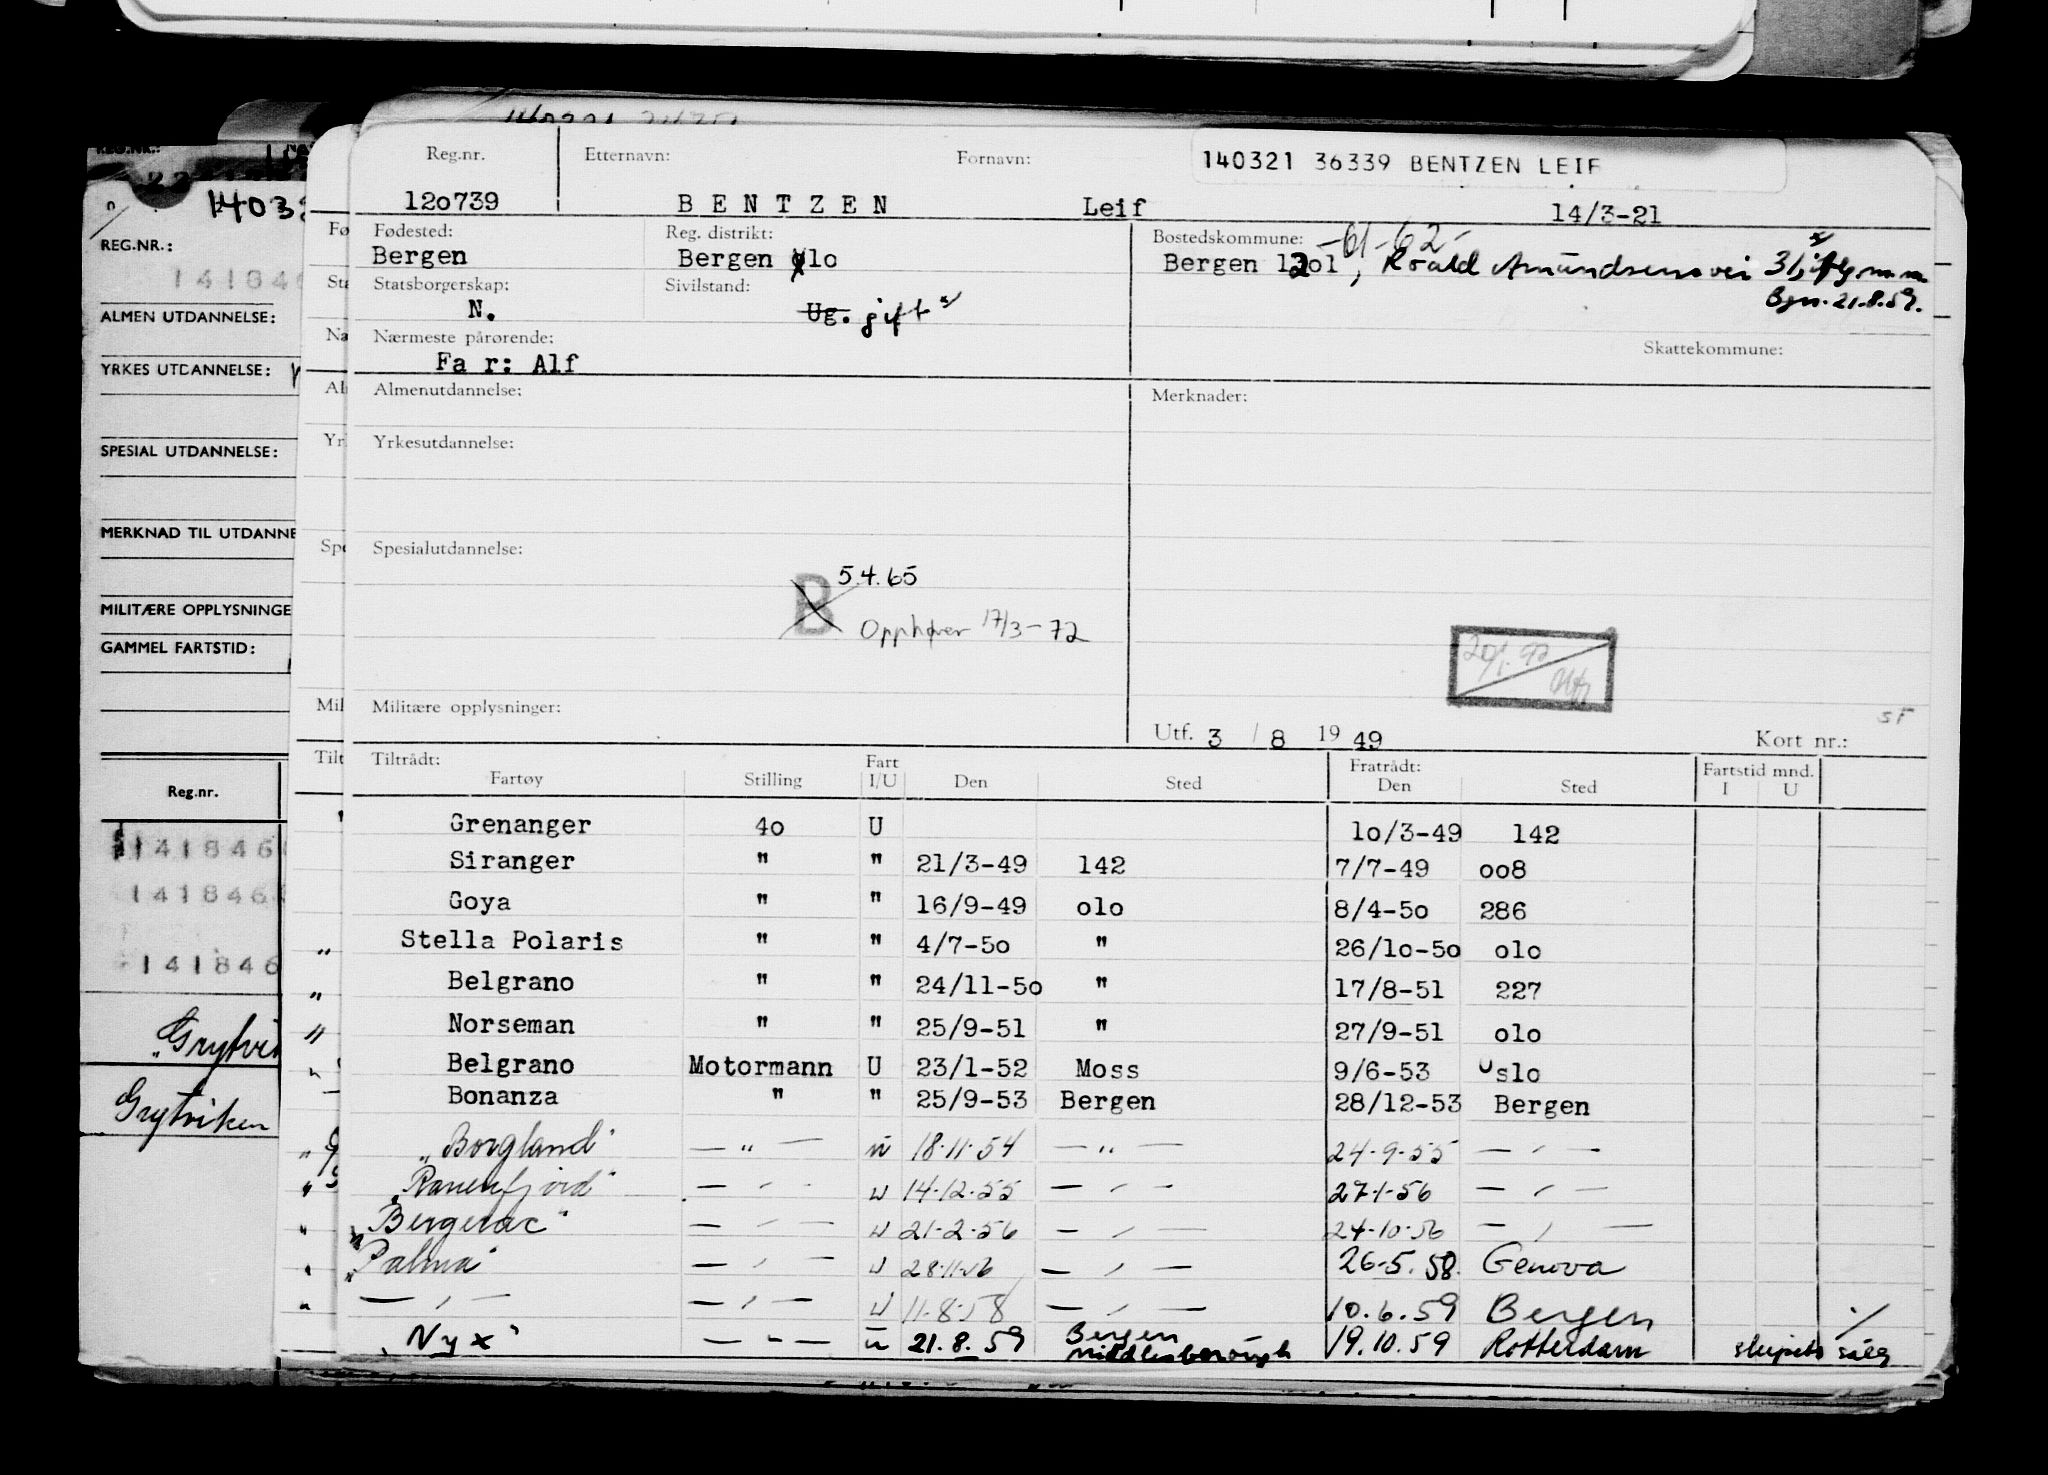 Reg.nr. Etternavn: Fornavn: 140321 36339 BENTZEN LEIF
12o739 B E N T Z E N Leif 14/3-21
Fødested: Reg. distrikt: Bostedskommune: -61-62-
Bergen Bergen olo Bergen 12o1, Roald Amundsensvei 31, iflg. m.m.
Bgn. 21.8.59.
Statsborgerskap: Sivilstand:
N. Ug. gift x/
Nærmeste pårørende: Skattekommune:
Fa r: Alf
Almenutdannelse: Merknader:
Yrkesutdannelse:
Spesialutdannelse:
B 5.4.65
Opphører 17/3-72
20/1.92
Militære opplysninger: sF
Utf. 3 / 8 19 49 Kort nr.:
Tiltrådt: Fart Fratrådt: Fartstid mnd.
Fartøy Stilling I/U Den Sted Den Sted I U
Grenanger 4o U 1o/3-49 142
Siranger " " 21/3-49 142 7/7-49 oo8
Goya " " 16/9-49 olo 8/4-5o 286
Stella Polaris " " 4/7-5o " 26/1o-5o olo
Belgrano " " 24/11-5o " 17/8-51 227
Norseman " " 25/9-51 " 27/9-51 olo
Belgrano Motormann U 23/1-52 Moss 9/6-53 Oslo
Bonanza " " 25/9-53 Bergen 28/12-53 Bergen
"Borgland" — " — u 18.11.54 — " — 24.9.55 — " —
"Ranenfjord" — " — u 14.12.55 — " — 27.1.56 — " —
"Bergerac" — " — u 21.2.56 — " — 24.10.56 — " —
"Palma" — " — u 28.11.56 — " — 26.5.58. Genova
— " — — " — u 11.8.58 — " — 10.6.59 Bergen ./
"Nyx" — " — u 21.8.59 Bergen 19.10.59 Rotterdam skipets salg
Middlesborough
REG.NR.:
141846
ALMEN UTDANNELSE:
YRKES UTDANNELSE:
SPESIAL UTDANNELSE:
MERKNAD TIL UTDANNE
MILITÆRE OPPLYSNINGE
GAMMEL FARTSTID:
Reg.nr.
141846
141846
141846
"Grytvi
Grytviken